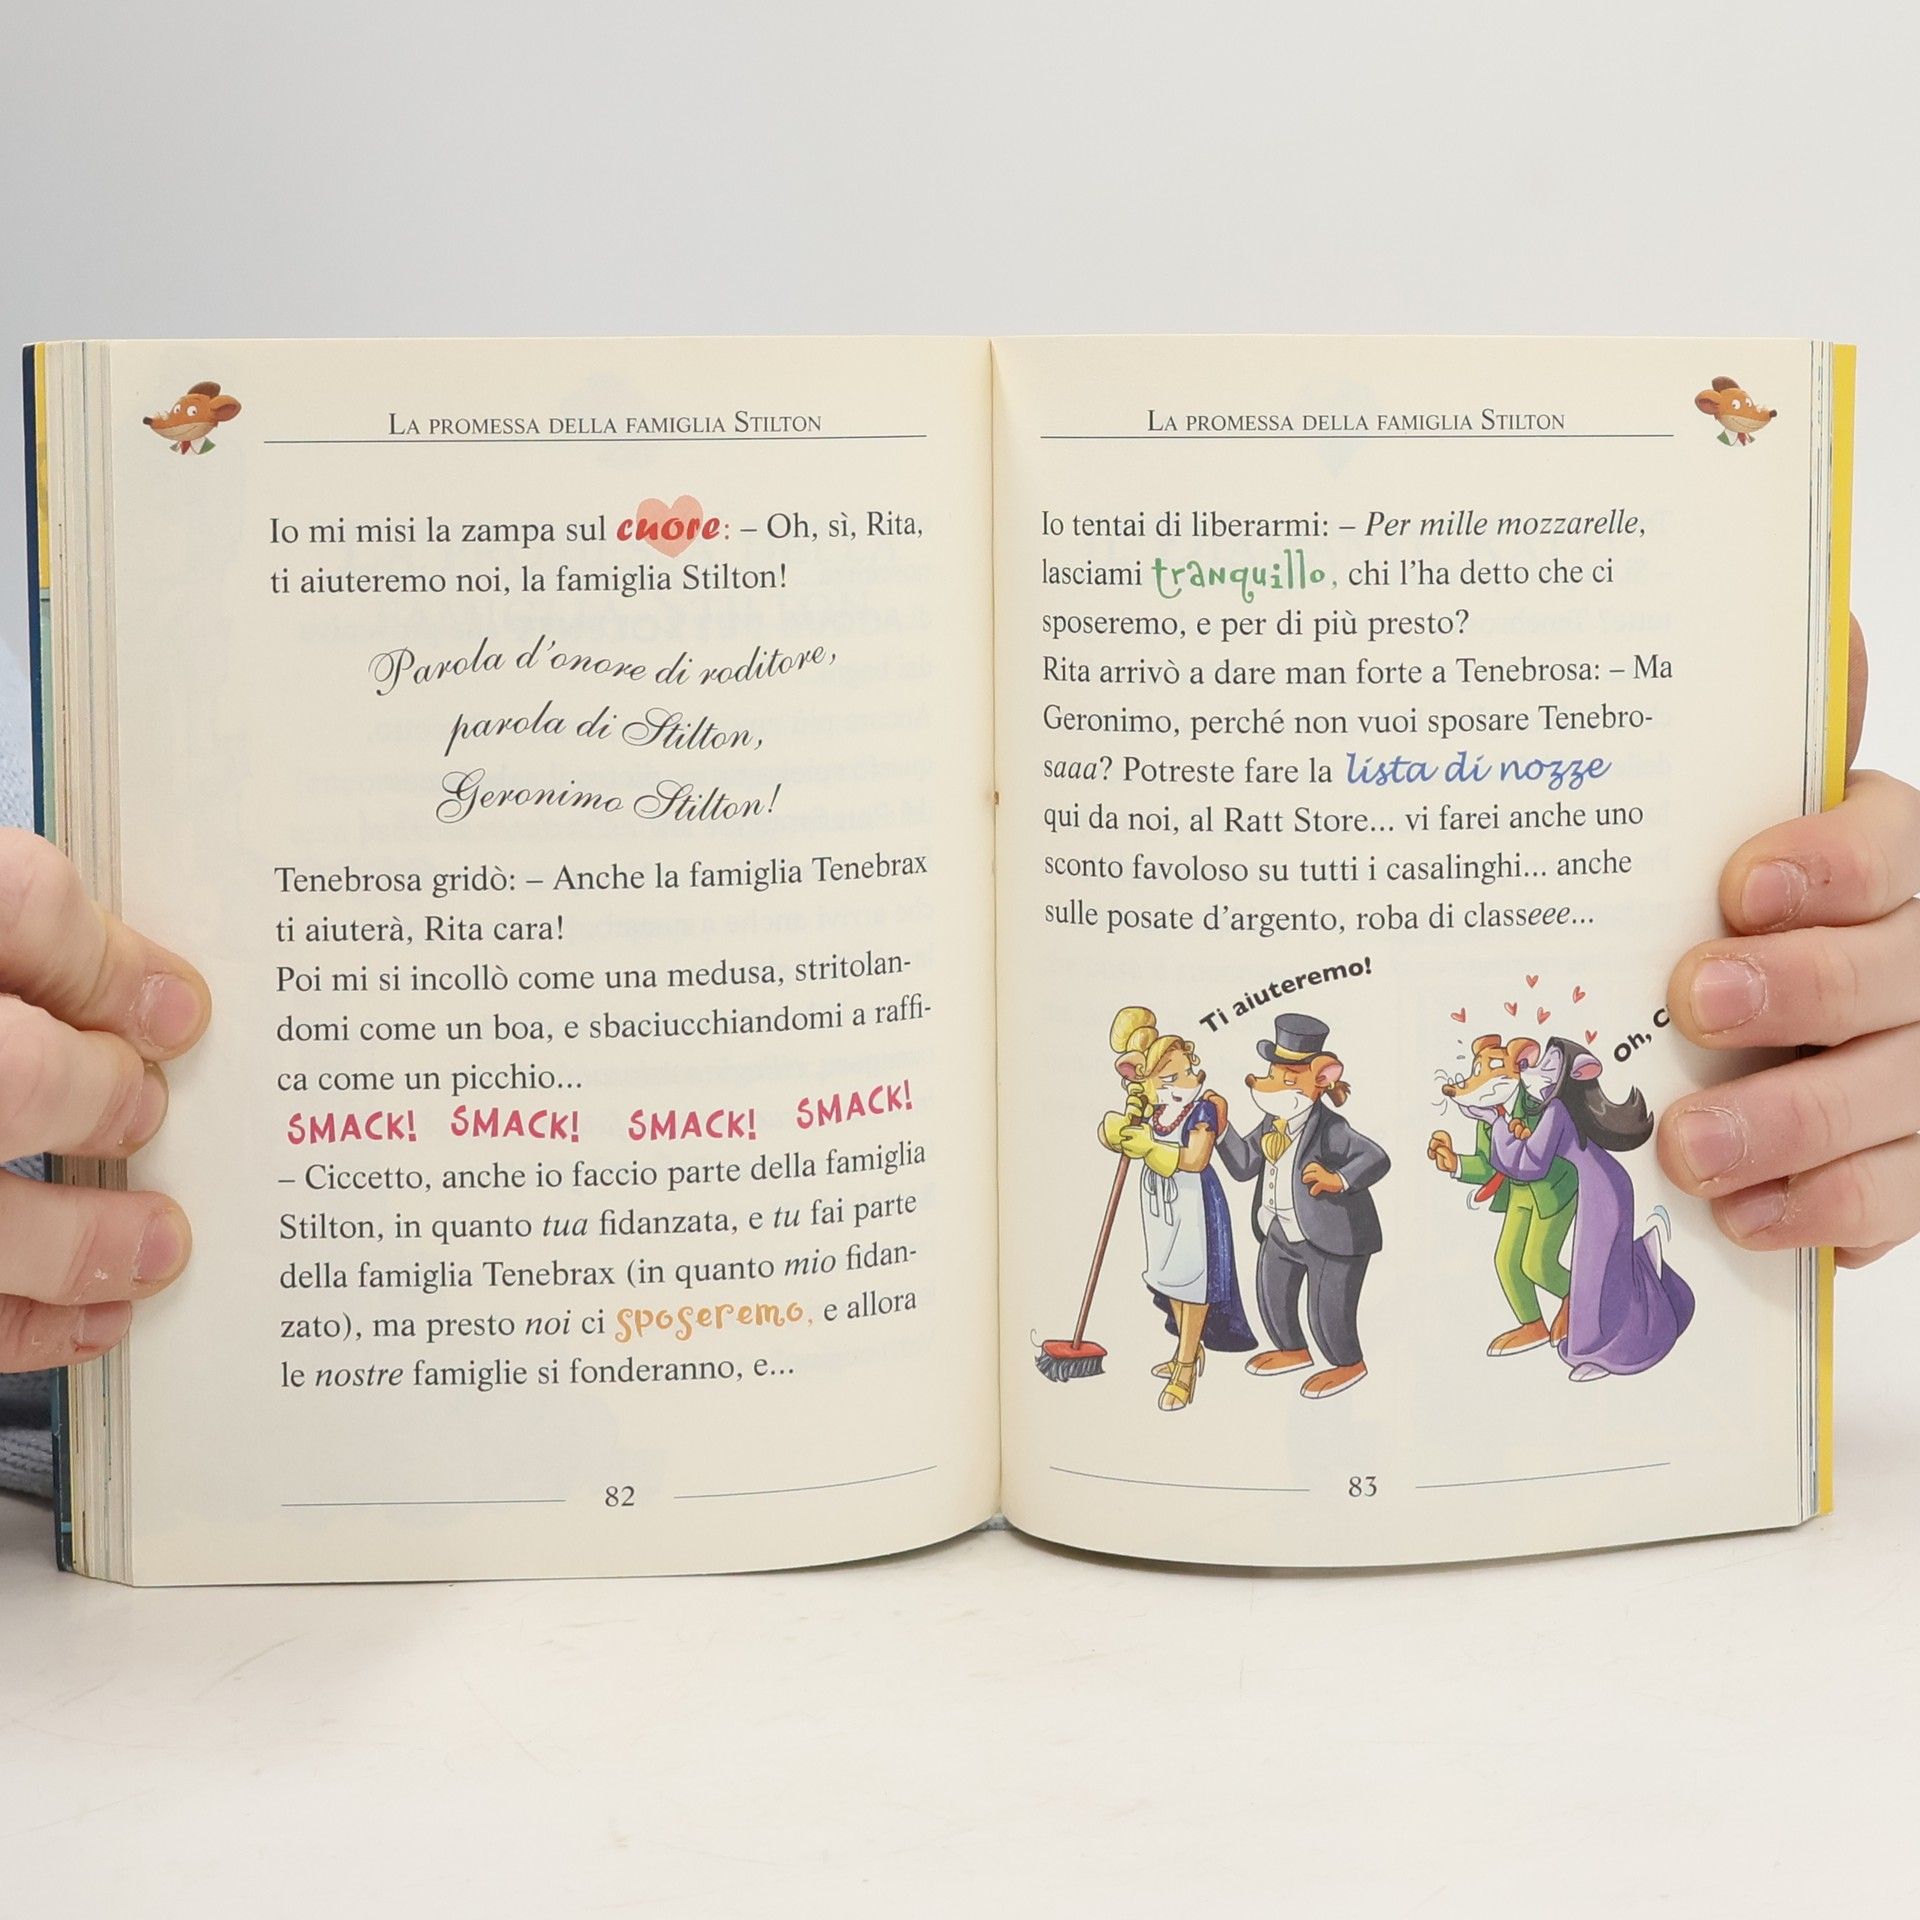 La promessa della famiglia Stilton
Io mi misi la zampa sul cuore: – Oh, sì, Rita,
ti aiuteremo noi, la famiglia Stilton!
Parola d'onore di roditore,
parola di Stilton,
Geronimo Stilton!
Tenebrosa gridò: – Anche la famiglia Tenebrax
ti aiuterà, Rita cara!
Poi mi si incollò come una medusa, stritolan-
domi come un boa, e sbaciucchiandomi a raffi-
ca come un picchio...
SMACK! SMACK! SMACK! SMACK!
– Ciccetto, anche io faccio parte della famiglia
Stilton, in quanto tua fidanzata, e tu fai parte
della famiglia Tenebrax (in quanto mio fidan-
zato), ma presto noi ci sposeremo, e allora
le nostre famiglie si fonderanno, e...
82
La promessa della famiglia Stilton
Io tentai di liberarmi: – Per mille mozzarelle,
lasciami tranquillo, chi l'ha detto che ci
sposeremo, e per di più presto?
Rita arrivò a dare man forte a Tenebrosa: – Ma
Geronimo, perché non vuoi sposare Tenebro-
saaa? Potreste fare la lista di nozze
qui da noi, al Ratt Store... vi farei anche uno
sconto favoloso su tutti i casalinghi... anche
sulle posate d'argento, roba di classeeee...
Ti aiuteremo!
Oh,
83